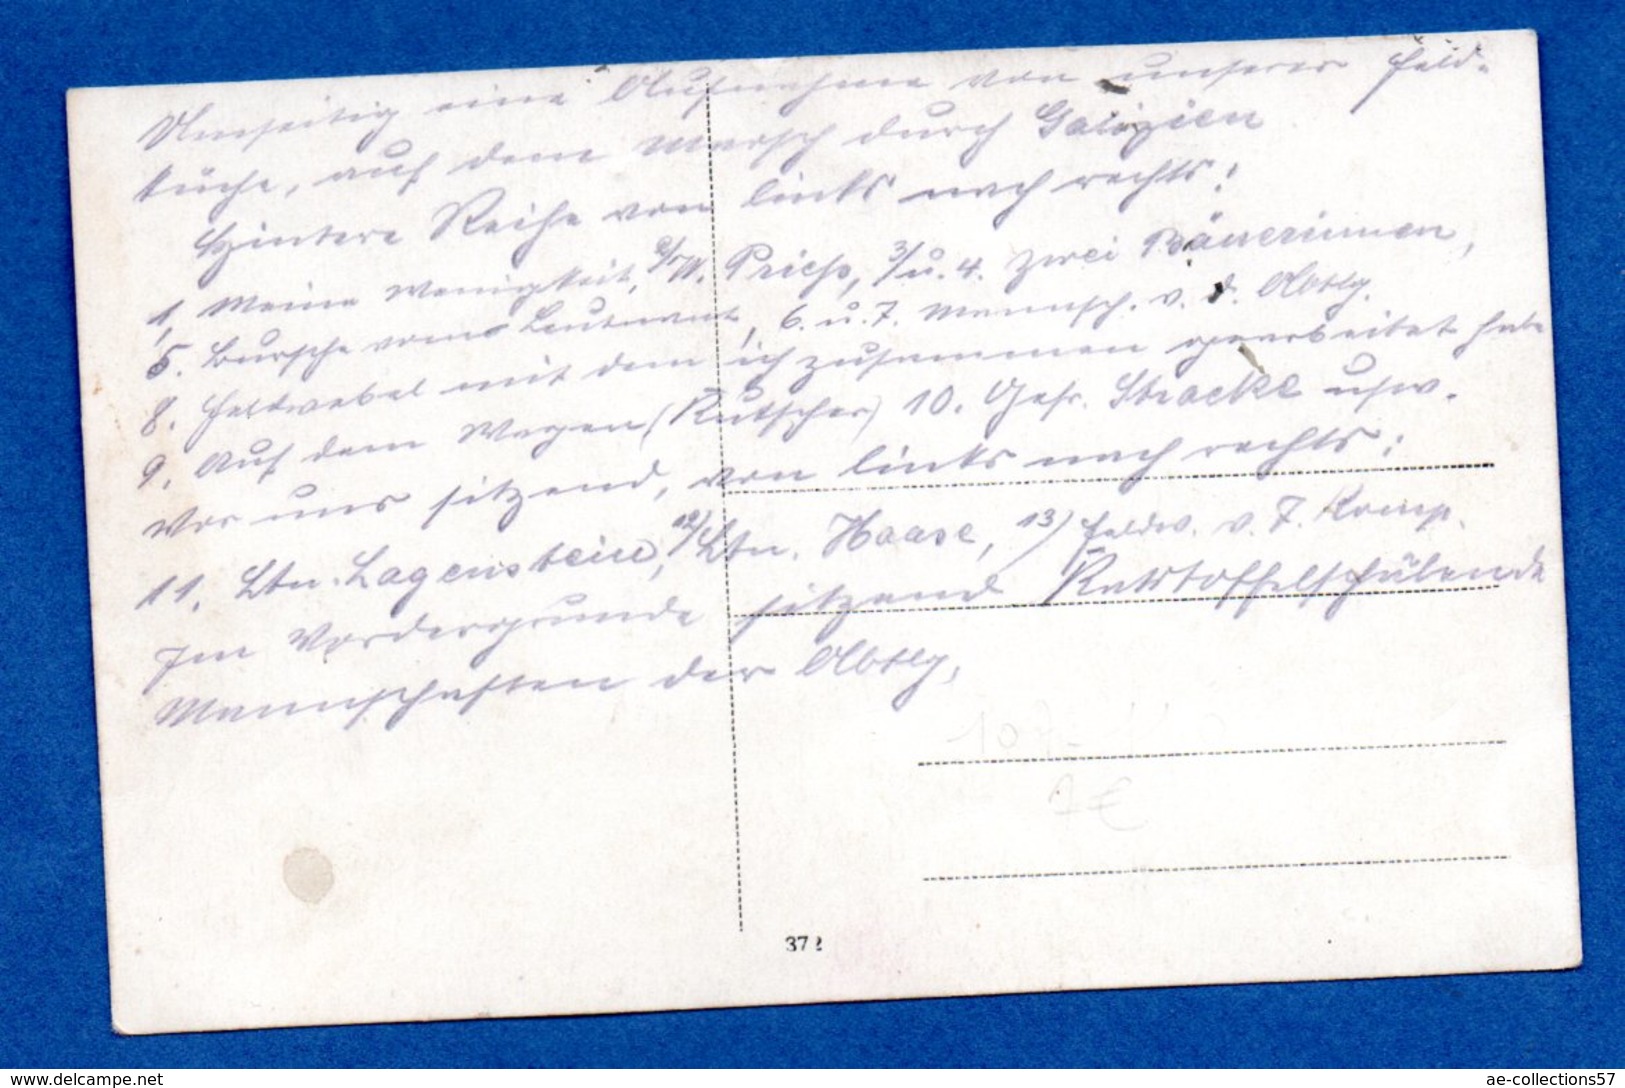 Umseitig eine Aufnahme von unserer Feld-
küche, auf dem Marsch durch Galizien
Hintere Reihe von links nach rechts:
1, Meine Wenigkeit, 2/ W. Prieß, 3/ u. 4. zwei Bäuerinnen,
5. Bursche vom Leutnant, 6. u. 7. Mannsch. v. d. Abtlg.
8. Feldwebel mit dem ich zusammen gearbeitet habe
9, Auf dem Wagen (Kutscher) 10. Gefr. Stracke usw.
Vor uns sitzend, von links nach rechts:
11. Ltn. Lagenstein, 12) Ltn. Haase, 13) Feldw. v. 7. Komp.
Im Vordergrunde sitzend Kartoffelschälende
Mannschaften der Abtlg.
107-
1€
372
ae-collections57
delcampe.net